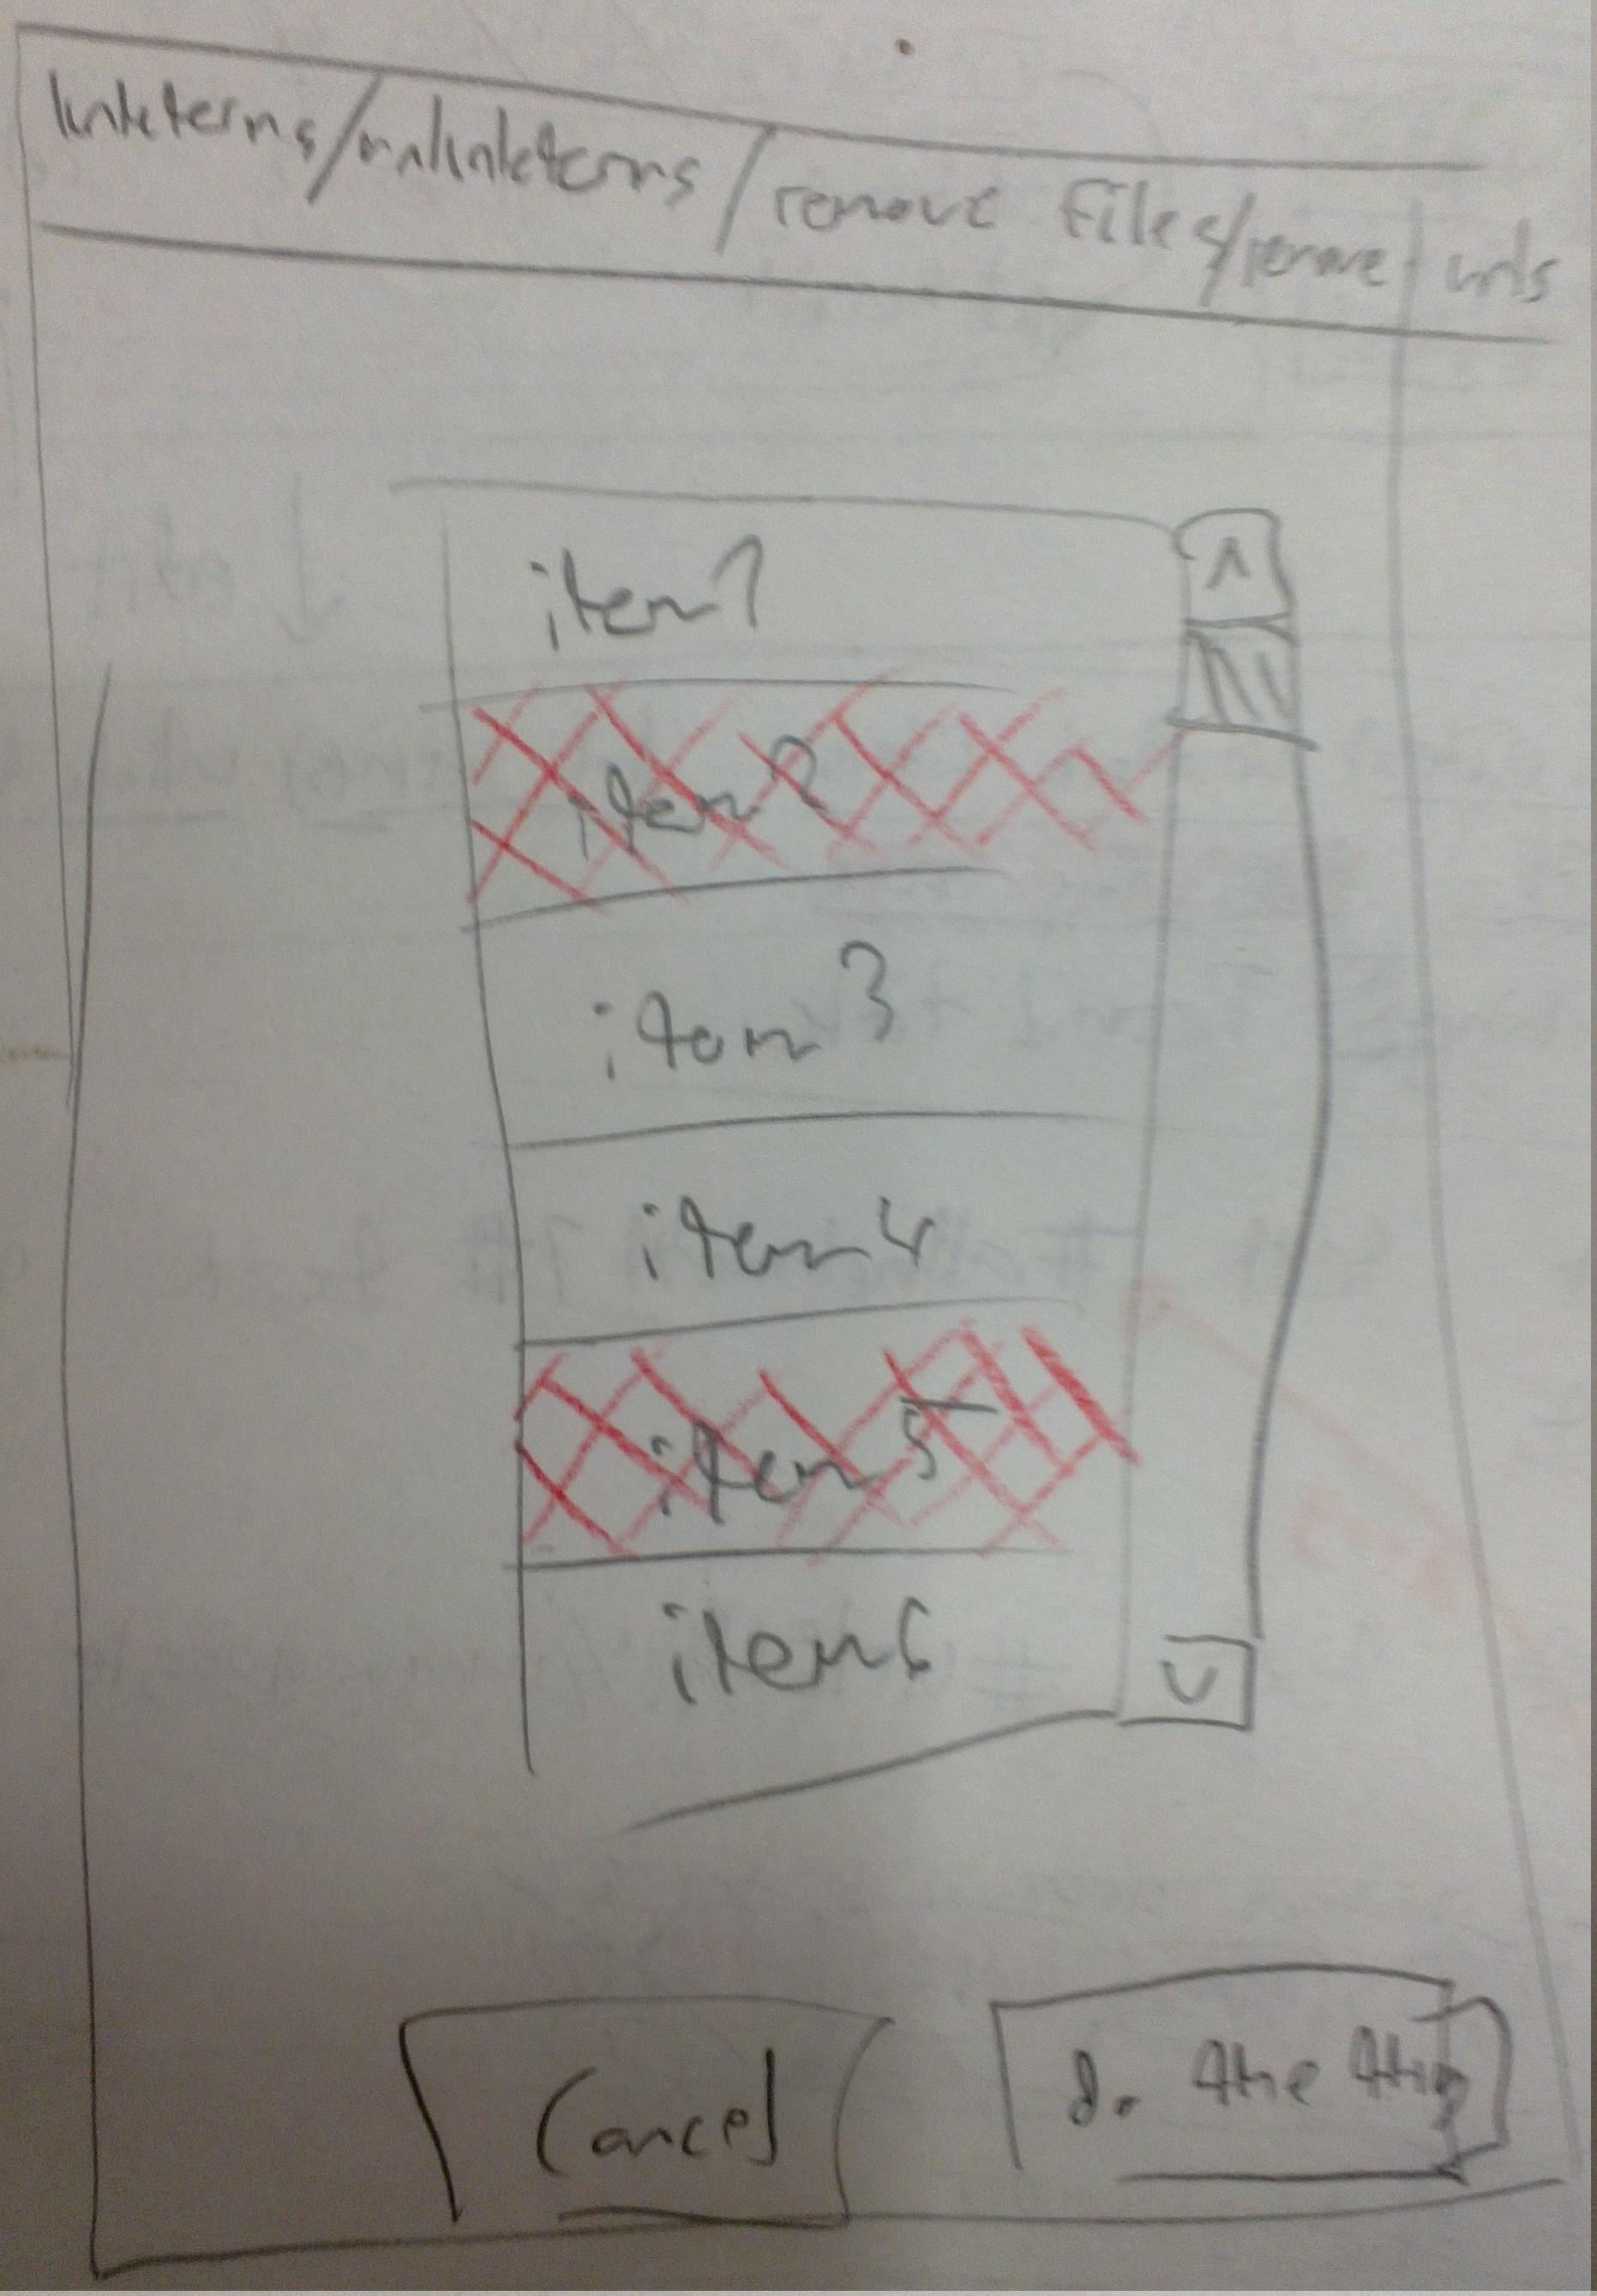 linkterms/unlinkterms/remove files/remove urls
item1
^
item2
item3
item4
item5
item6
v
Cancel
do the thing